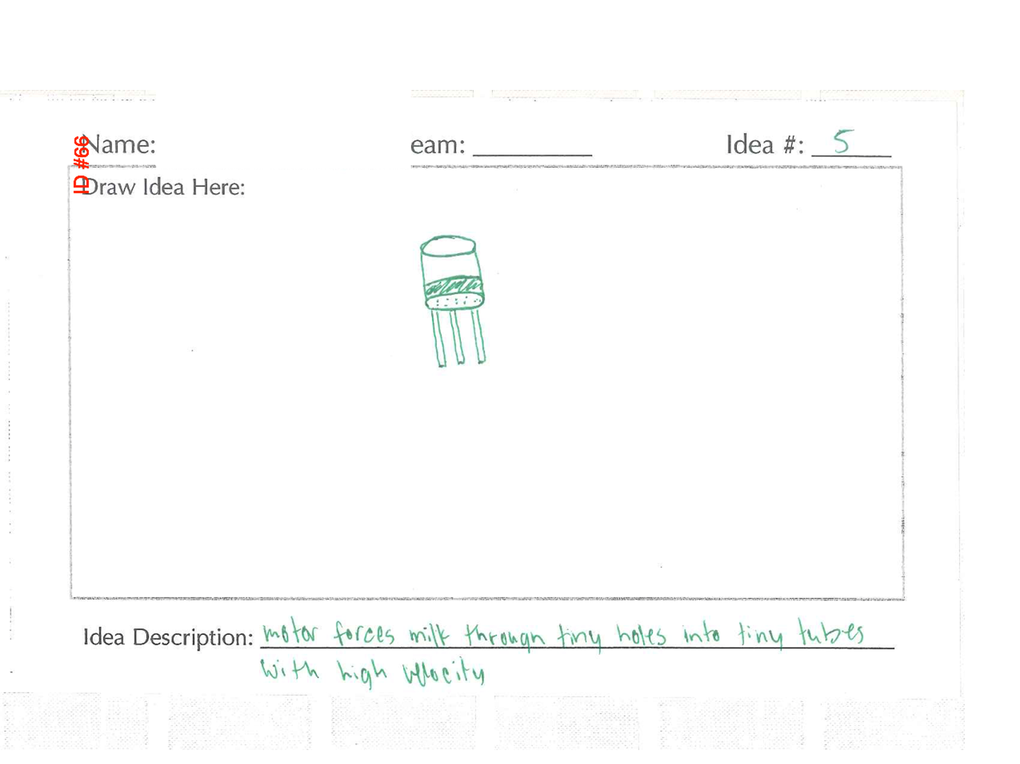 ID #66
Name: eam: Idea #: 5
Draw Idea Here:
Idea Description: motor forces milk through tiny holes into tiny tubes
with high velocity